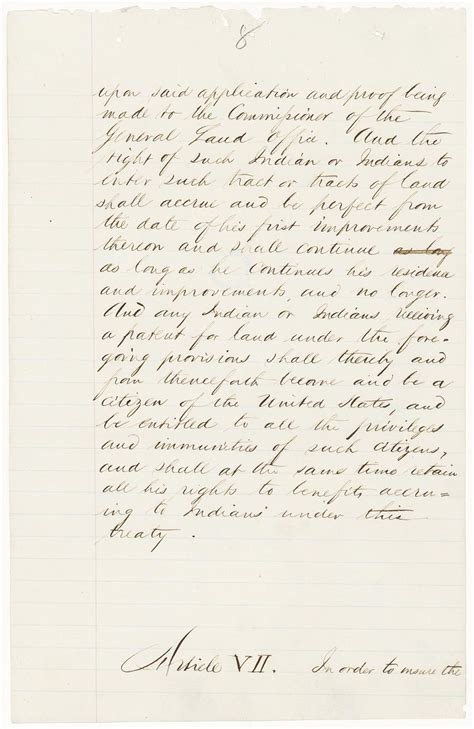 8
upon said application and proof being
made to the Commissioner of the
General Land Office. And the
right of such Indian or Indians to
enter such tract or tracts of land
shall accrue and be perfect from
the date of his first improvements
thereon and shall continue as long
as long as he continues his residence
and improvements, and no longer.
And any Indian or Indians receiving
a patent for land under the fore-
going provisions shall thereby and
from thenceforth become and be a
citizen of the United States, and
be entitled to all the privileges
and immunities of such citizens,
and shall at the same time retain
all his rights to benefits accru=
ing to Indians under this
treaty.
Article VII. In order to insure the